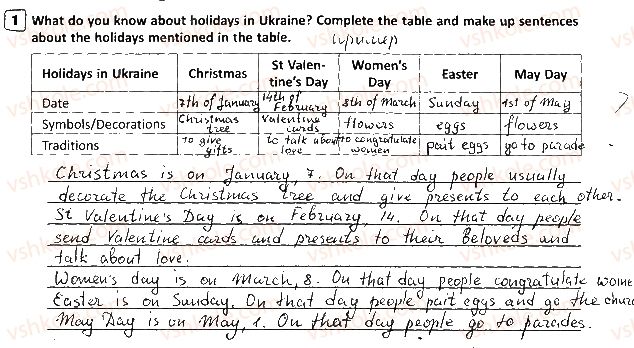 1 What do you know about holidays in Ukraine? Complete the table and make up sentences
about the holidays mentioned in the table.
Holidays in Ukraine Christmas St Valen-tine's Day Women's Day Easter May Day
Date 7th of January 14th of February 8th of March Sunday 1st of May
Symbols/Decorations Christmas tree Valentine cards flowers eggs flowers
Traditions to give gifts to talk about love to congratulate women pait eggs go to parade
Christmas is on January, 7. On that day people usually
decorate the Christmas tree and give presents to each other.
St Valentine's Day is on February, 14. On that day people
send Valentine cards and presents to their beloveds and
talk about love.
Women's day is on March, 8. On that day people congratulate wome
Easter is on Sunday. On that day people pait eggs and go the chur
May Day is on May, 1. On that day people go to parades.